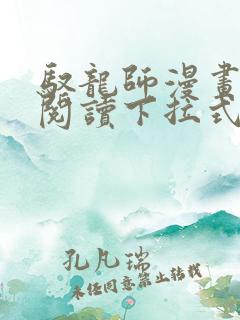 馭龍師漫畫
閱讀下拉式
孔凡瑞
未經同意禁止轉載